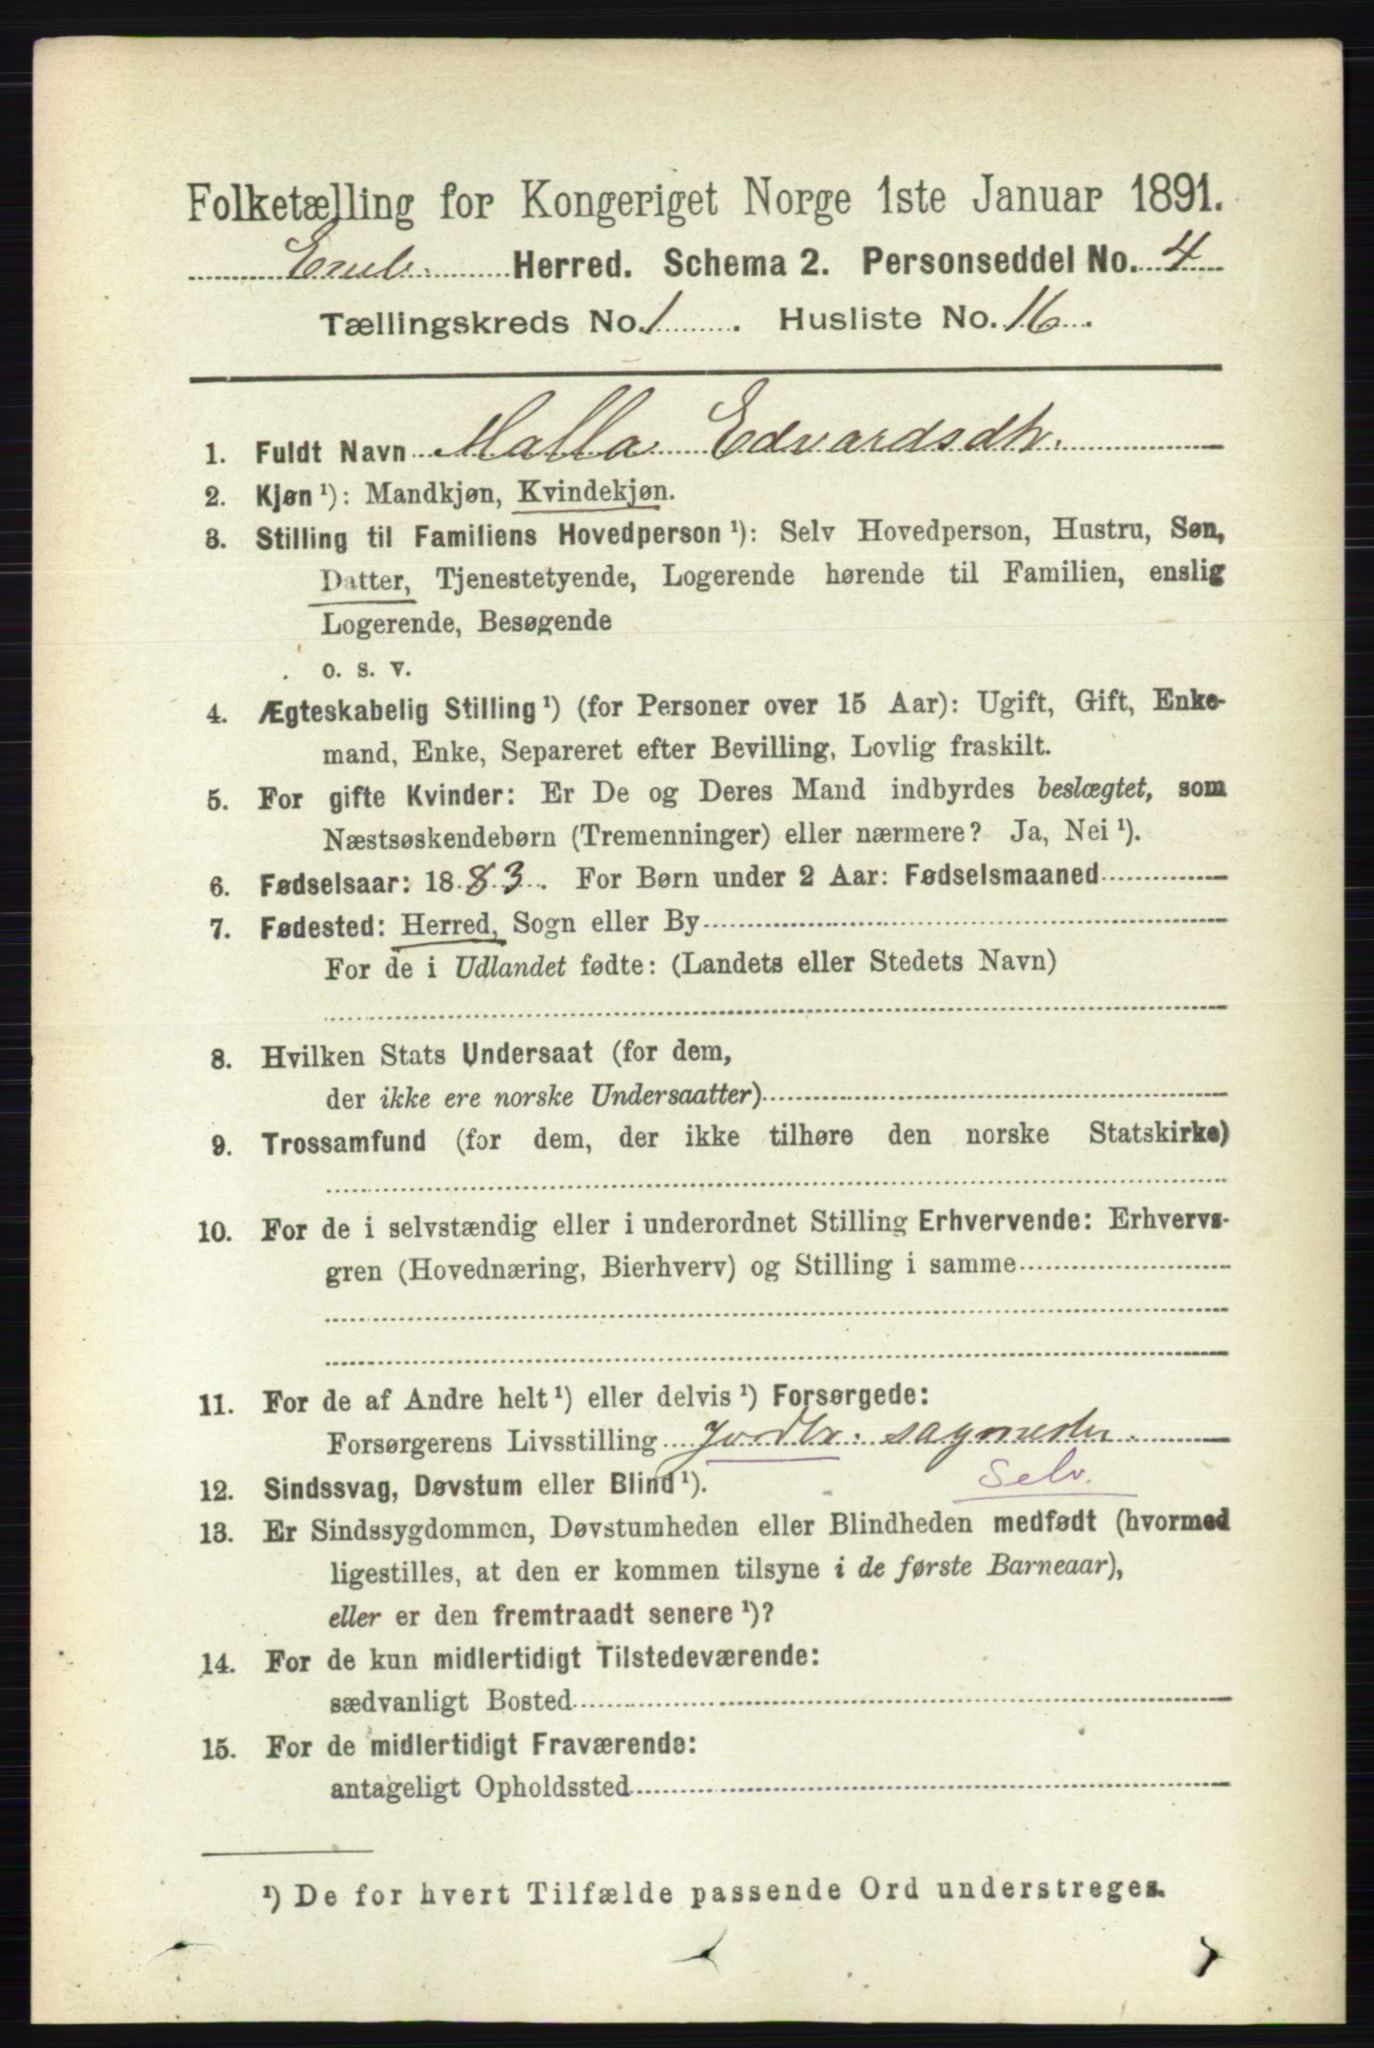 Folketælling for Kongeriget Norge 1ste Januar 1891.
Herred. Schema 2. Personseddel No. 4
Tællingskreds No. 1. Husliste No. 16.
1. Fuldt Navn Malla Edvardsdtr.
2. Kjøn ¹): Mandkjøn, Kvindekjøn.
3. Stilling til Familiens Hovedperson ¹): Selv Hovedperson, Hustru, Søn,
Datter, Tjenestetyende, Logerende hørende til Familien, enslig
Logerende, Besøgende
o. s. v.
4. Ægteskabelig Stilling ¹) (for Personer over 15 Aar): Ugift, Gift, Enke-
mand, Enke, Separeret efter Bevilling, Lovlig fraskilt.
5. For gifte Kvinder: Er De og Deres Mand indbyrdes beslægtet, som
Næstsøskendebørn (Tremenninger) eller nærmere? Ja, Nei ¹).
6. Fødselsaar: 1883. For Børn under 2 Aar: Fødselsmaaned
7. Fødested: Herred, Sogn eller By
For de i Udlandet fødte: (Landets eller Stedets Navn)
8. Hvilken Stats Undersaat (for dem,
der ikke ere norske Undersaatter)
9. Trossamfund (for dem, der ikke tilhøre den norske Statskirke)
10. For de i selvstændig eller i underordnet Stilling Erhvervende: Erhvervs-
gren (Hovednæring, Bierhverv) og Stilling i samme
11. For de af Andre helt ¹) eller delvis ¹) Forsørgede:
Forsørgerens Livsstilling Jordbr. sagmester.
Selv.
12. Sindssvag, Døvstum eller Blind ¹).
13. Er Sindssygdommen, Døvstumheden eller Blindheden medfødt (hvormed
ligestilles, at den er kommen tilsyne i de første Barneaar),
eller er den fremtraadt senere ¹)?
14. For de kun midlertidigt Tilstedeværende:
sædvanligt Bosted
15. For de midlertidigt Fraværende:
antageligt Opholdssted
¹) De for hvert Tilfælde passende Ord understreges.